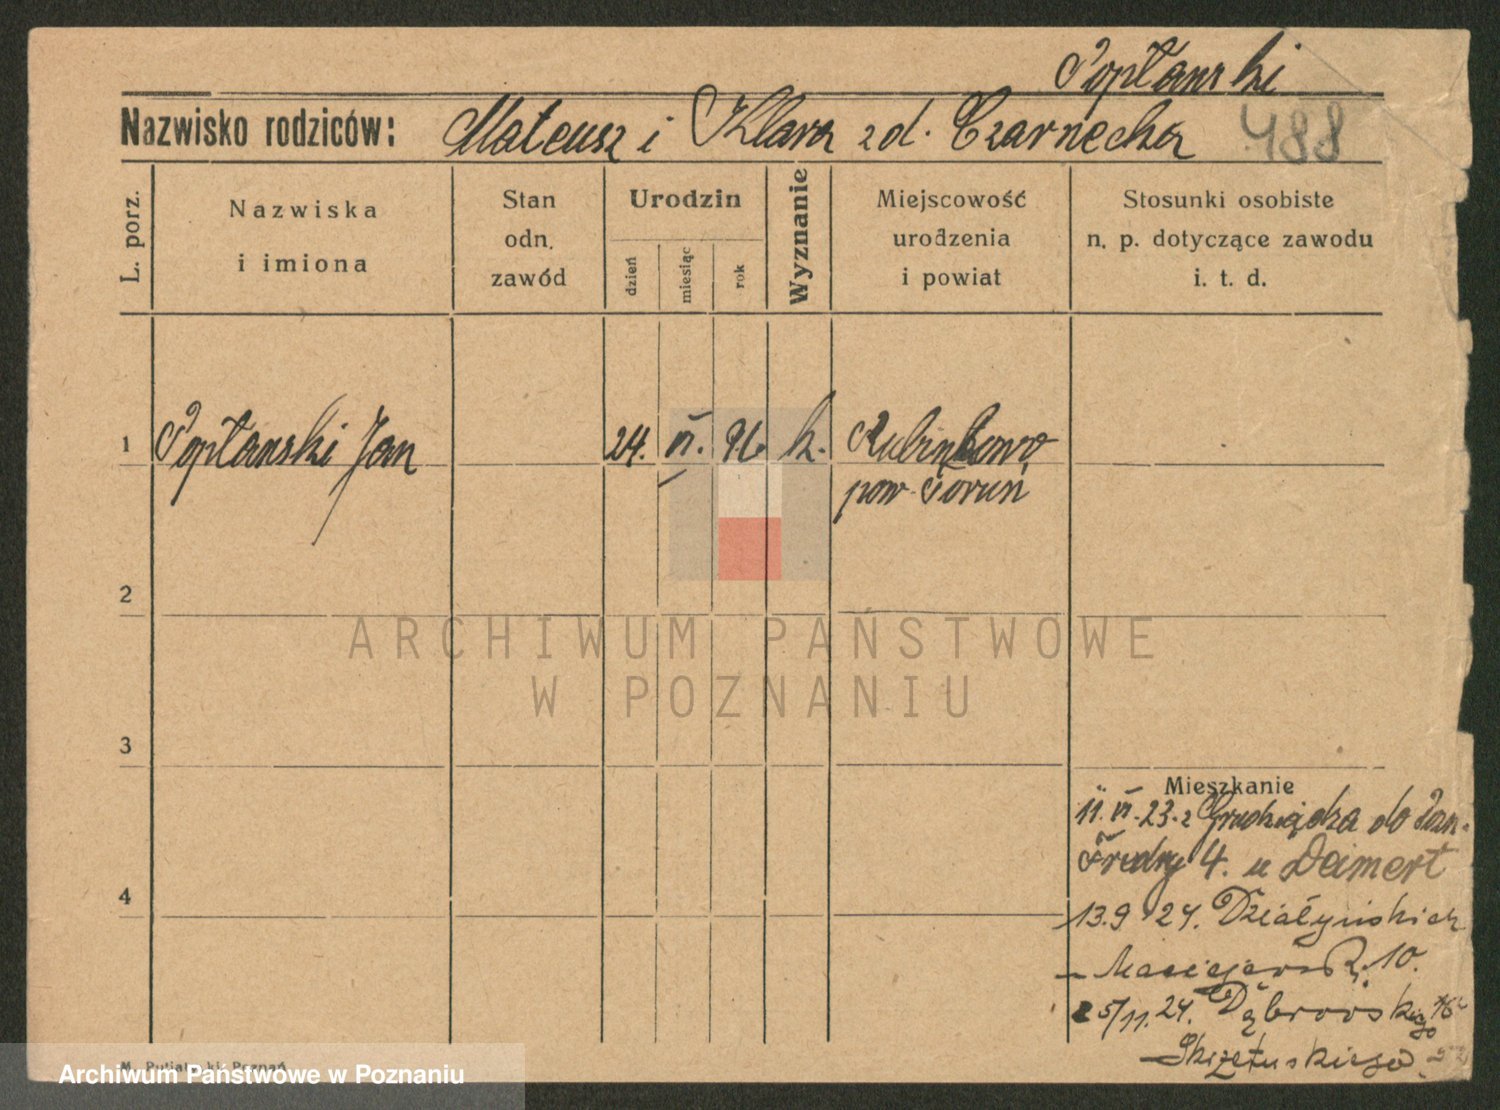 Popłanski
Nazwisko rodziców: Mateusz i Klara zd. Czarnecka 488
L. porz.
Nazwiska
i imiona
Stan
odn.
zawód
Urodzin
dzień
miesiąc
rok
Wyznanie
Miejscowość
urodzenia
i powiat
Stosunki osobiste
n. p. dotyczące zawodu
i. t. d.
1 Popłanski Jan 24. VI. 96 k. Rubinkowo
pow. Toruń
2
ARCHIWUM PAŃSTWOWE
W POZNANIU
3
Mieszkanie
11. VI. 23. z Grudziądza do Pozn.
Fredry 4. u Deimert
4
13.9 24. Działyńskich
10.
25/11. 24. Dąbrowskiego
Skrzetuskiego
Poznań
Archiwum Państwowe w Poznaniu